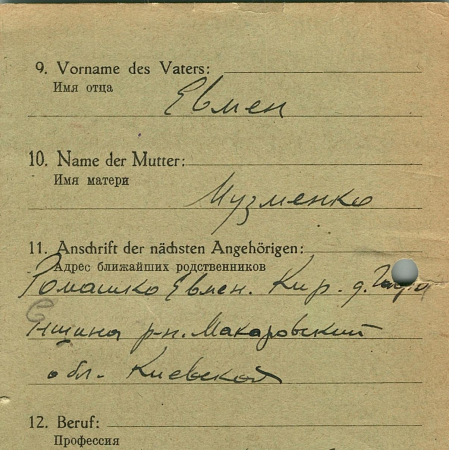 9. Vorname des Vaters:
Имя отца
Евмен
10. Name der Mutter:
Имя матери
Музменко
11. Anschrift der nächsten Angehörigen:
Адрес ближайших родственников
Ромашко Евмен. Кир. д.
р-н. Макаровский
обл. Киевской
12. Beruf:
Профессия